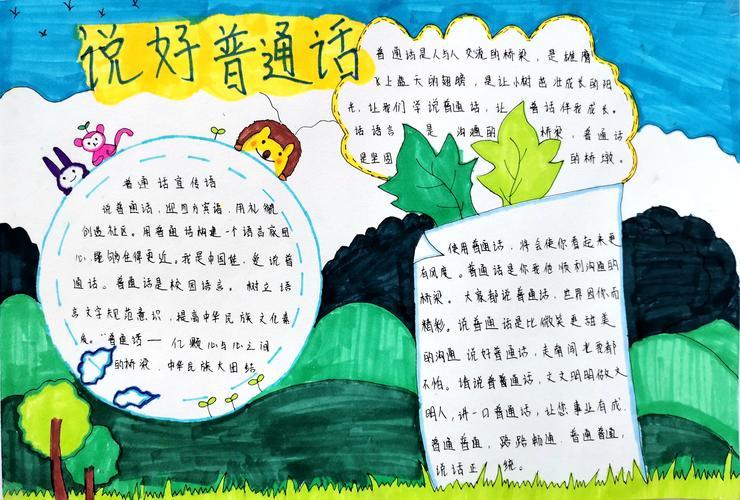 说好普通话
普通话是人与人交流的桥梁，是雄鹰
飞上蓝天的翅膀，是让小树茁壮成长的阳
光，让我们学说普通话，让 普话伴我成长。
话语言 是 沟通的 桥梁，普通话
是坚固 的桥墩。
普通话宣传语
说普通话，迎四方宾语，用礼貌
创造社区。用普通话构建一个语言家园
心，能够住得更近。我是中国娃，爱说普
通话。普通话是校园语言。树立语
言文字规范意识，提高中华民族文化素
质。"普通话一 亿颗心与心之间
的桥梁，中华民族大团结
使用普通话，将会使你看起来更
有风度。普通话是你我他顺利沟通的
桥梁。大家都说普通话，世界因你而
精彩。说普通话是比微笑更甜美
的沟通，说好普通话，走南闯北我都
不怕。请说普普通话，文文明明做文
明人，讲一口普通话，让您事业有成。
普通普通，路路畅通，普通普通，
说话正统。